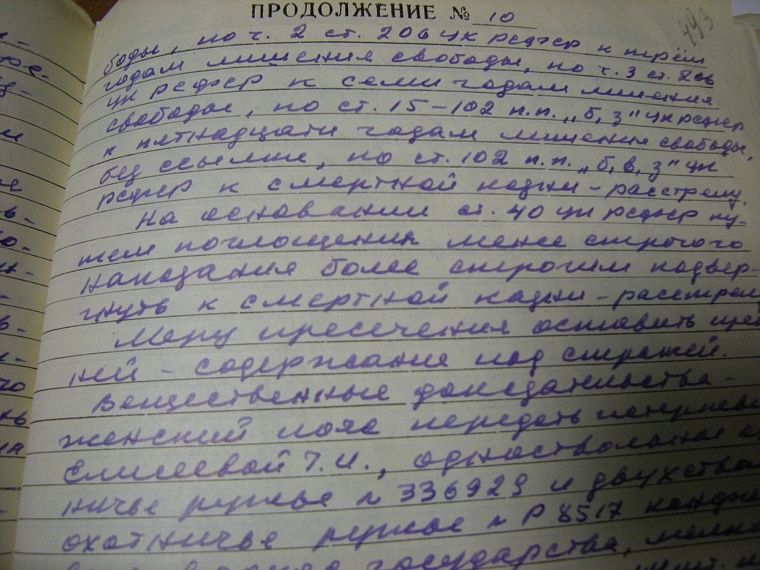 ПРОДОЛЖЕНИЕ № 10
493
боды, по ч. 2 ст. 206 УК РСФСР к трём
годам лишения свободы, по ч. 3 ст. 206
УК РСФСР к семи годам лишения
свободы, по ст. 15-102 п.п. „б, з" УК РСФСР
к пятнадцати годам лишения свободы,
без ссылки, по ст. 102 п.п. „б, в, з" УК
РСФСР к смертной казни - расстрелу.
На основании ст. 40 УК РСФСР пу-
тем поглощения менее строгого
наказания более строгим подвер-
гнуть к смертной казни - расстрелу
Меру пресечения оставить преж
ней - содержание под стражей.
Вещественные доказательства -
женский пояс передать потерпев
Елисеевой Т.И., одноствольное о
ничье ружье № 336929 и двухство
охотничье ружье № Р 8517
государства,